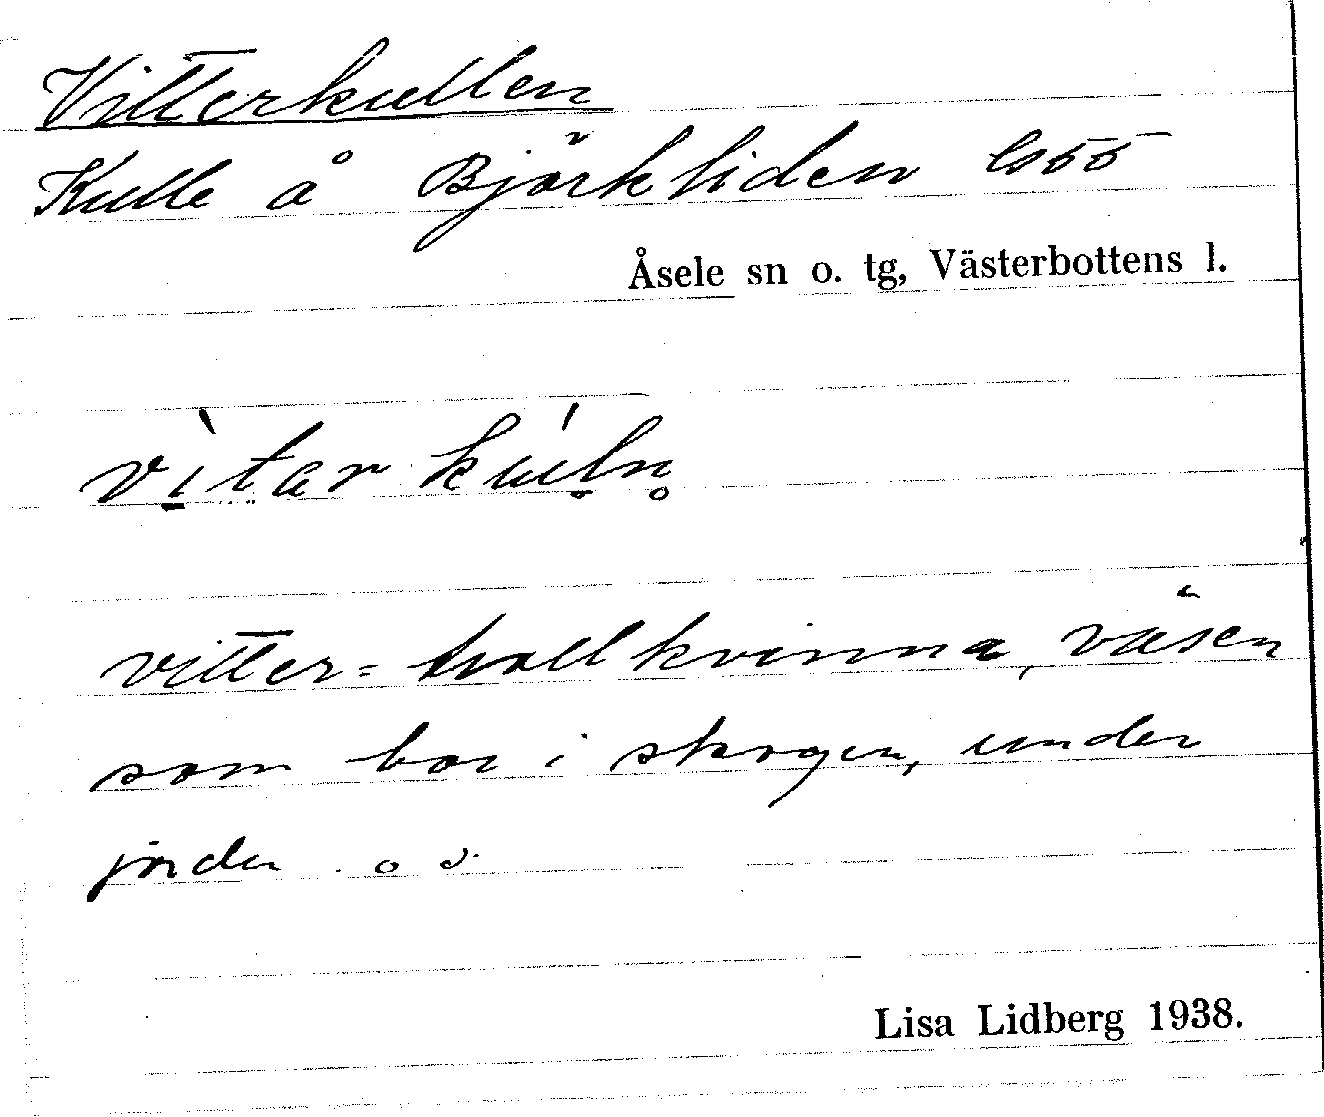 Vitterkullen
Kulle å Björkliden
Åsele sn o. tg, Västerbottens l.
vitter = trollkvinna, väsen
som bor i skogen, under
jorden o d.
Lisa Lidberg 1938.